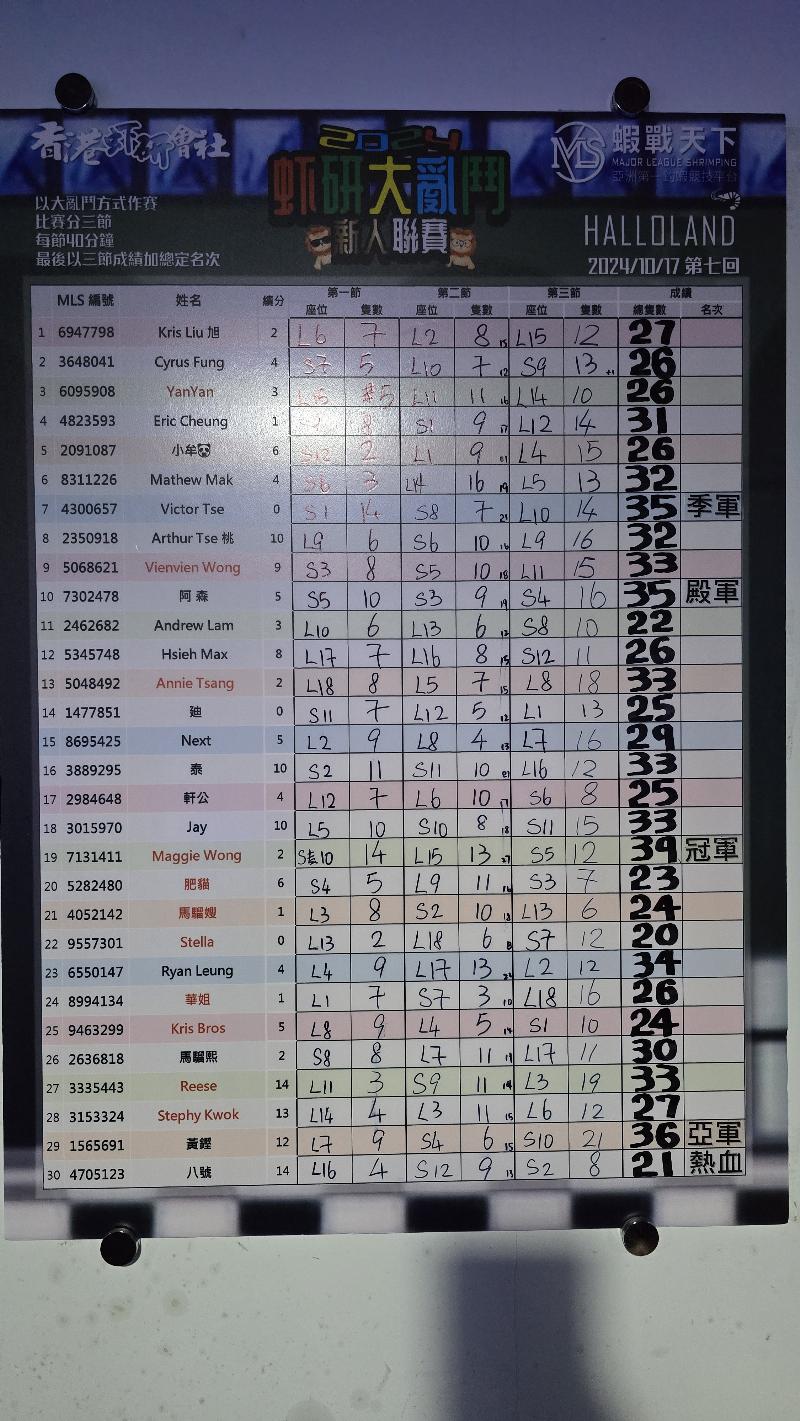 香港蝦研會社
2024
虾研大亂鬥
新人聯賽
MLS 蝦戰天下
MAJOR LEAGUE SHRIMPING
亞洲第一釣蝦競技平台
以大亂鬥方式作賽
比賽分三節
每節40分鐘
最後以三節成績加總定名次
HALLOLAND
2024/10/17 第七回
第一節 第二節 第三節 成績
MLS 編號 姓名 績分 座位 隻數 座位 隻數 座位 隻數 總隻數 名次
1 6947798 Kris Liu 旭 2 L6 7 L2 8 15 L15 12 27
2 3648041 Cyrus Fung 4 S7 5 L10 7 12 S9 13 +1 26
3 6095908 YanYan 3 L15 5 L11 11 16 L14 10 26
4 4823593 Eric Cheung 1 8 S1 9 17 L12 14 31
5 2091087 小牟🐼 6 S12 2 L1 9 11 L4 15 26
6 8311226 Mathew Mak 4 S6 3 L14 16 19 L5 13 32
7 4300657 Victor Tse 0 S1 14 S8 7 21 L10 14 35 季軍
8 2350918 Arthur Tse 桃 10 L9 6 S6 10 16 L9 16 32
9 5068621 Vienvien Wong 9 S3 8 S5 10 18 L11 15 33
10 7302478 阿 森 5 S5 10 S3 9 19 S4 16 35 殿軍
11 2462682 Andrew Lam 3 L10 6 L13 6 12 S8 10 22
12 5345748 Hsieh Max 8 L17 7 L16 8 15 S12 11 26
13 5048492 Annie Tsang 2 L18 8 L5 7 15 L8 18 33
14 1477851 廸 0 S11 7 L12 5 12 L1 13 25
15 8695425 Next 5 L2 9 L8 4 13 L7 16 29
16 3889295 泰 10 S2 11 S11 10 21 L16 12 33
17 2984648 軒公 4 L12 7 L6 10 17 S6 8 25
18 3015970 Jay 10 L5 10 S10 8 18 S11 15 33
19 7131411 Maggie Wong 2 S10 14 L15 13 27 S5 12 39 冠軍
20 5282480 肥貓 6 S4 5 L9 11 16 S3 7 23
21 4052142 馬騮嫂 1 L3 8 S2 10 18 L13 6 24
22 9557301 Stella 0 L13 2 L18 6 8 S7 12 20
23 6550147 Ryan Leung 4 L4 9 L17 13 22 L2 12 34
24 8994134 華姐 1 L1 7 S7 3 10 L18 16 26
25 9463299 Kris Bros 5 L8 9 L4 5 14 S1 10 24
26 2636818 馬騮熙 2 S8 8 L7 11 19 L17 11 30
27 3335443 Reese 14 L11 3 S9 11 14 L3 19 33
28 3153324 Stephy Kwok 13 L14 4 L3 11 15 L6 12 27
29 1565691 黃鏗 12 L7 9 S4 6 15 S10 21 36 亞軍
30 4705123 八號 14 L16 4 S12 9 13 S2 8 21 熱血